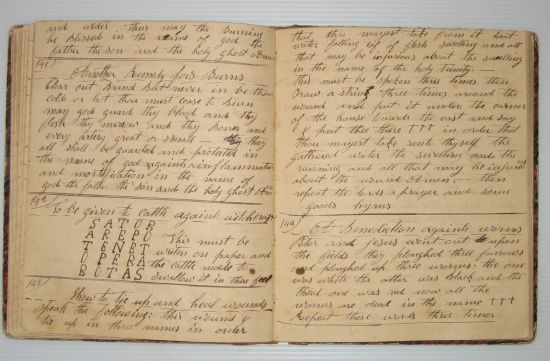 and wider thus may the burning
be blessed in the name of god the
father the son and the holy ghost Amen
141
Another Remedy for Burns
Clear out Brand But never in be thou
cold or hot thou must cease to Burn
may god guard thy blood and thy
flesh thy marrow and thy Bones and
every artery great or small they
all shall be guarded and protected in
the name of god against inflammation
and mortification in the name of
god the father the son and the holy ghost Amen
142
To be given to cattle against witchcraft
S A T T R
A R E P O
T E N E T
O P E R A
R O T A S
This must be
writen on paper and
the cattle made to
swallow it in their feed
143
How to tie up and heal wounds
Speak the following: this wound I
tie up in three names in order
that thou mayest take from it heat
water falling off of flesh swelling and all
that may be injurious about the swelling
in the name of the holy trinity
This must be spoken three times then
Draw a string three times around the
wound and put it under the corner
of the house towards the east and say
I put thee there ††† in order that
thou mayest take unto thyself the
gathered water the swelling and the
running and all that may be injurious
about the wound Amen. then
repeat the lords prayer and some
good hymn
144 A Benediction against worms
Peter and Jesus went out upon
the fields they ploughed three furrows
and ploughed up three worms. the one
was white the other was Black and the
third one was red now all the
worms are dead in the name †††
Repeat these words three times